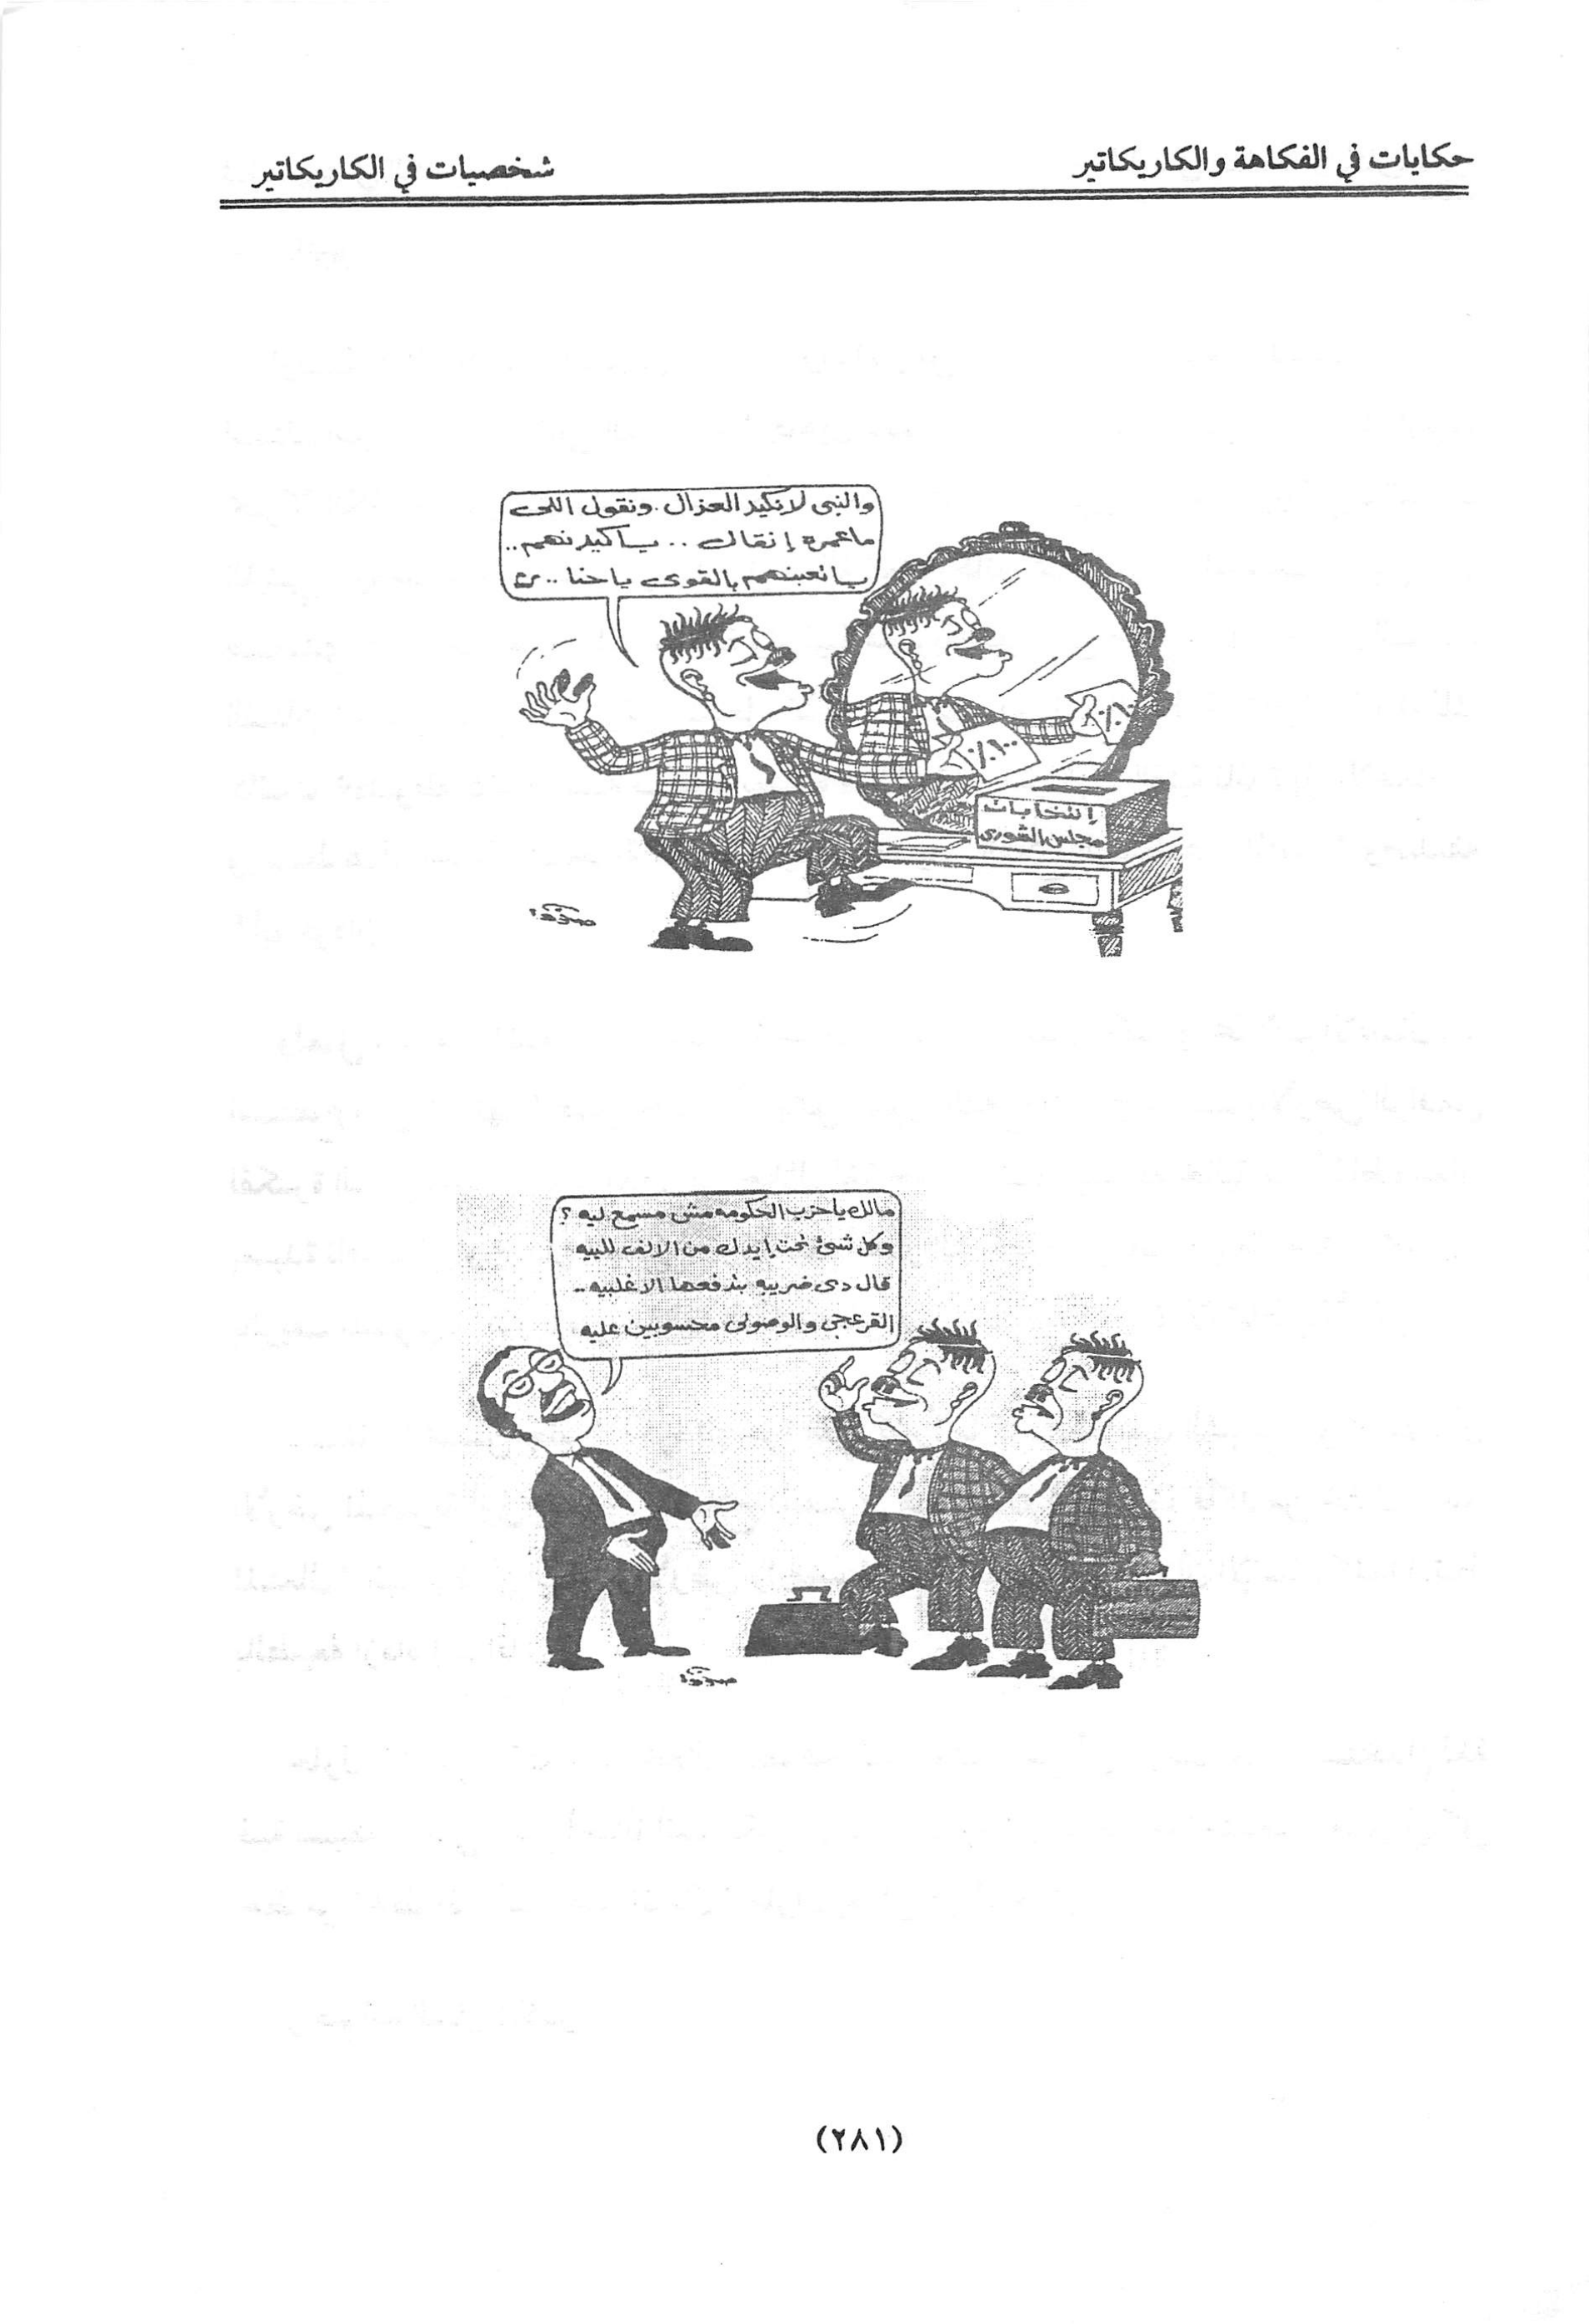 حكايات في الفكاهة والكاريكاتير
شخصيات في الكاريكاتير
والنبى لانكيد العزال . ونقول اللى
ماعمره إنقال .. ياكيدنهم ..
ياتعبنهم بالقوى ياحنا ..
٪١٠٠
٪١٠٠
إنتخابات
مجلس الشورى
مالك ياحزب الحكومه مش مسمع ليه ؟
وكل شئ تحت إيدك من الالف للييه
قال دى ضريبه بندفعها الاغلبيه ..
القرعجى والوصولى محسوبين عليه
(٢٨١)